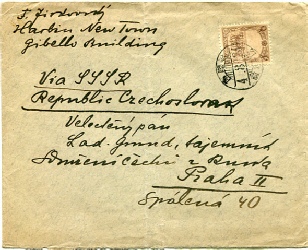 F. Jirdovský
Harbin New Town
Gibello Building
Via SSSR
Republic Czechoslovak
Velectěný pán
Lad. , tajemník
z Ruska
Praha II
Spálená 40